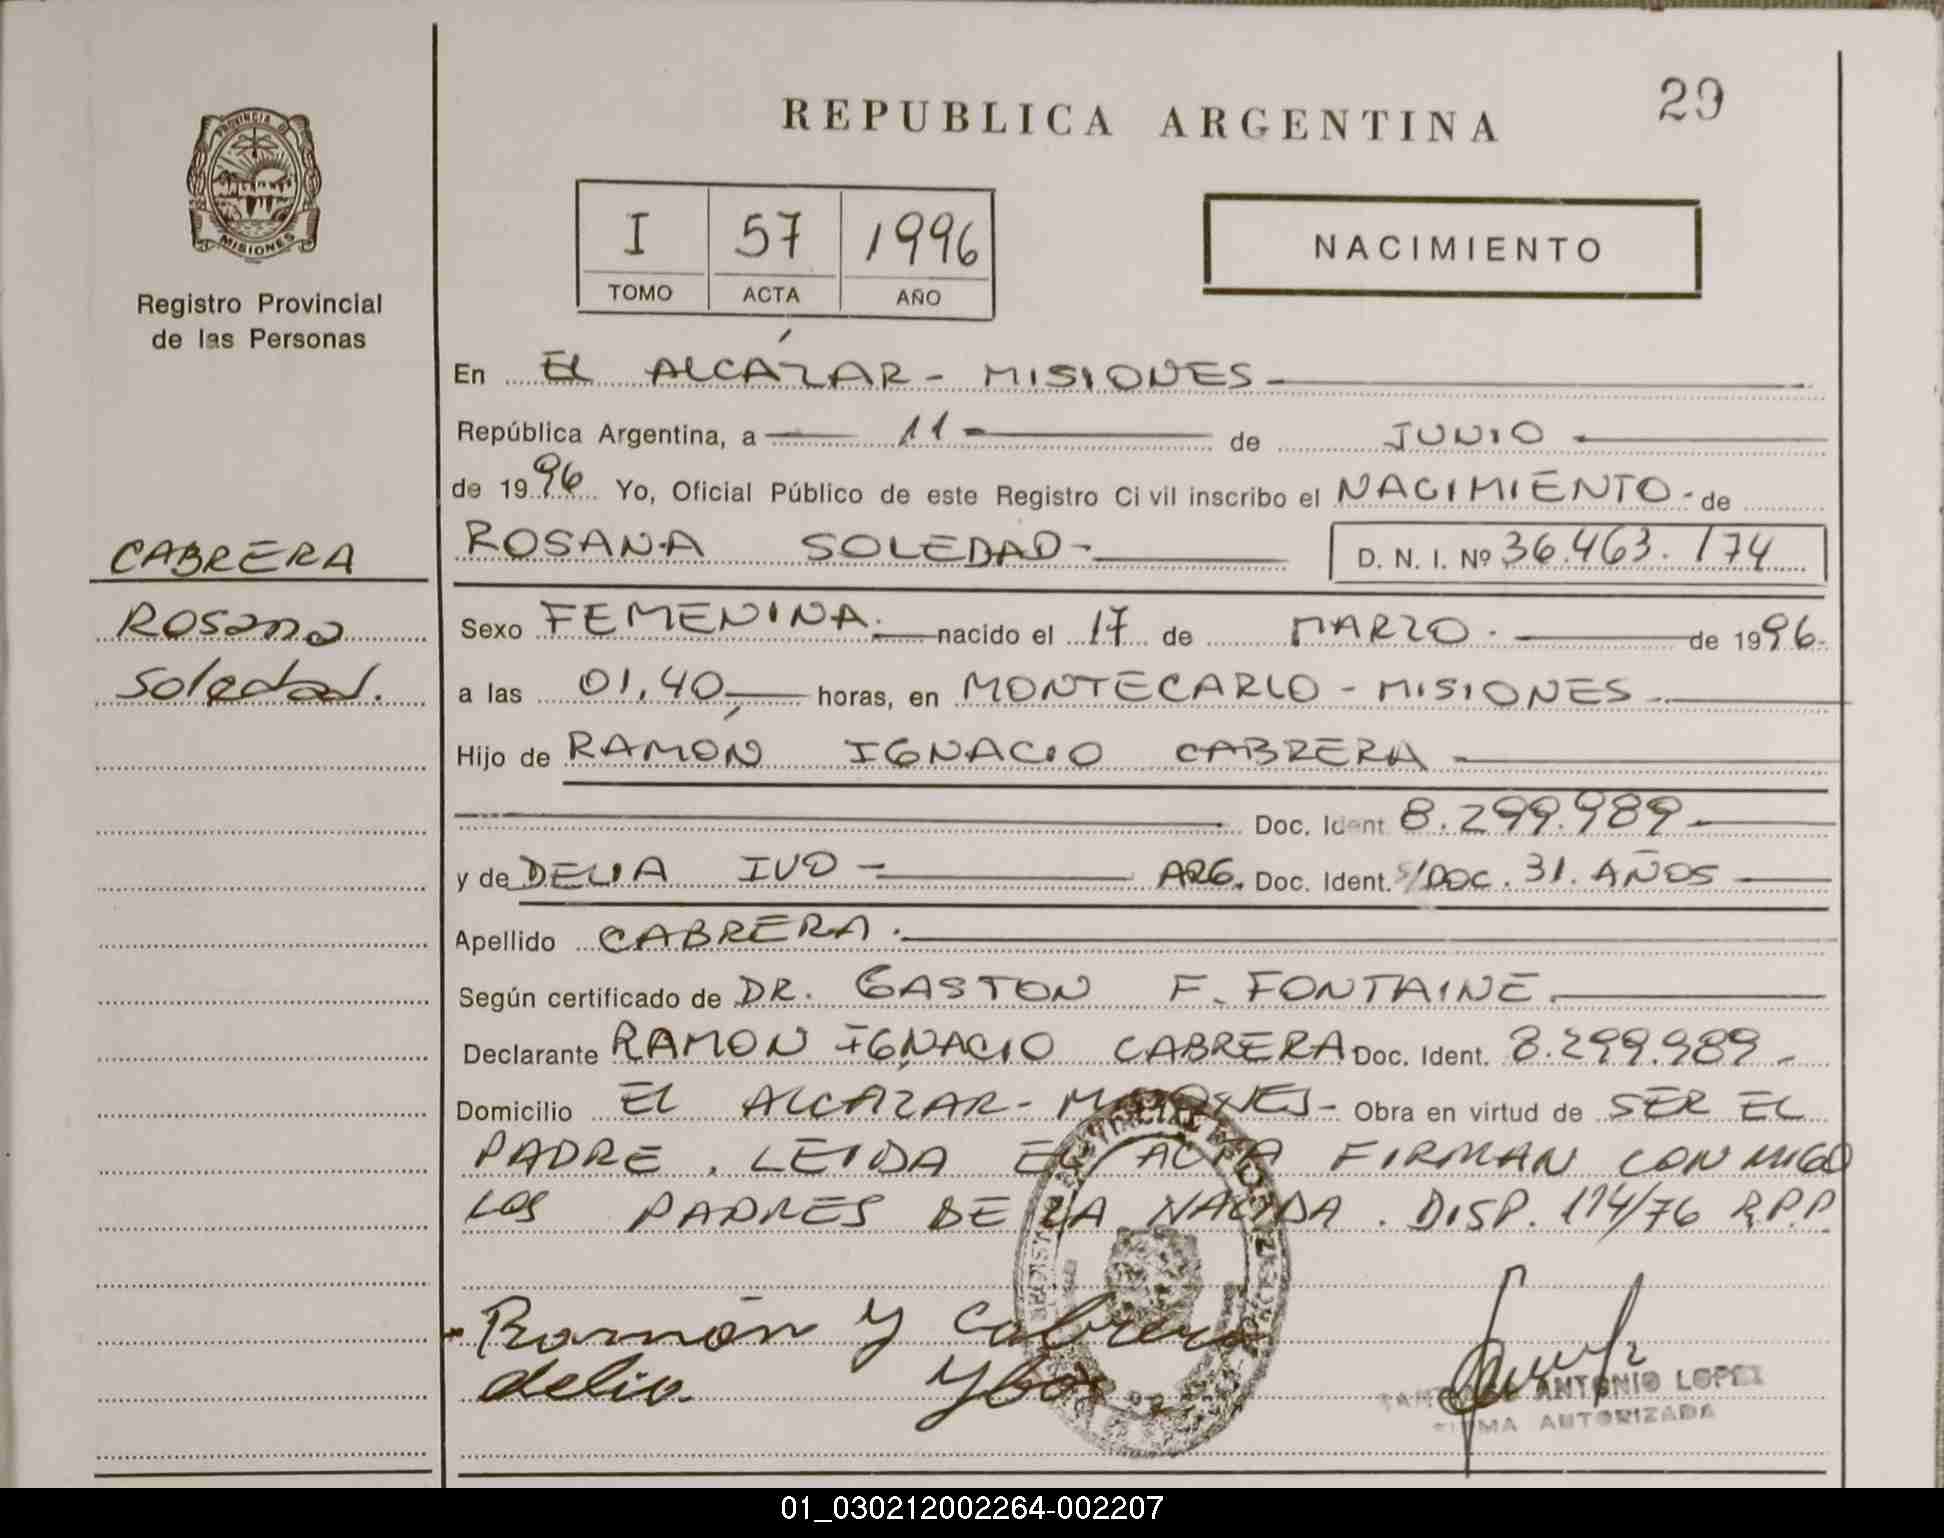 REPUBLICA ARGENTINA
29
PROVINCIA DE
MISIONES
Registro Provincial
de las Personas
I 57 1996
TOMO ACTA AÑO
NACIMIENTO
En EL ALCÁZAR - MISIONES
República Argentina, a 11 - de JUNIO
de 1996 Yo, Oficial Público de este Registro Civil inscribo el NACIMIENTO - de
ROSANA SOLEDAD - D. N. I. Nº 36.463.174
CABRERA
Rosana
Soledad.
Sexo FEMENINA. nacido el 17 de MARZO. de 1996.
a las 01,40 horas, en MONTECARLO - MISIONES
Hijo de RAMÓN IGNACIO CABRERA
Doc. Ident 8.299.989
y de DELIA IVO - ARG. Doc. Ident. S/DOC. 31. AÑOS
Apellido CABRERA.
Según certificado de DR. GASTON F. FONTAINE.
Declarante RAMON IGNACIO CABRERA Doc. Ident. 8.299.989 -
Domicilio EL ALCAZAR - MISIONES - Obra en virtud de SER EL
PADRE. LEIDA EL ACTA FIRMAN CONMIGO
LOS PADRES DE LA NACIDA. DISP. 114/76 R.P.P
Ramón Y Cabrera
delia Ybo
ANTONIO LOPEZ
FIRMA AUTORIZADA
01_030212002264-002207